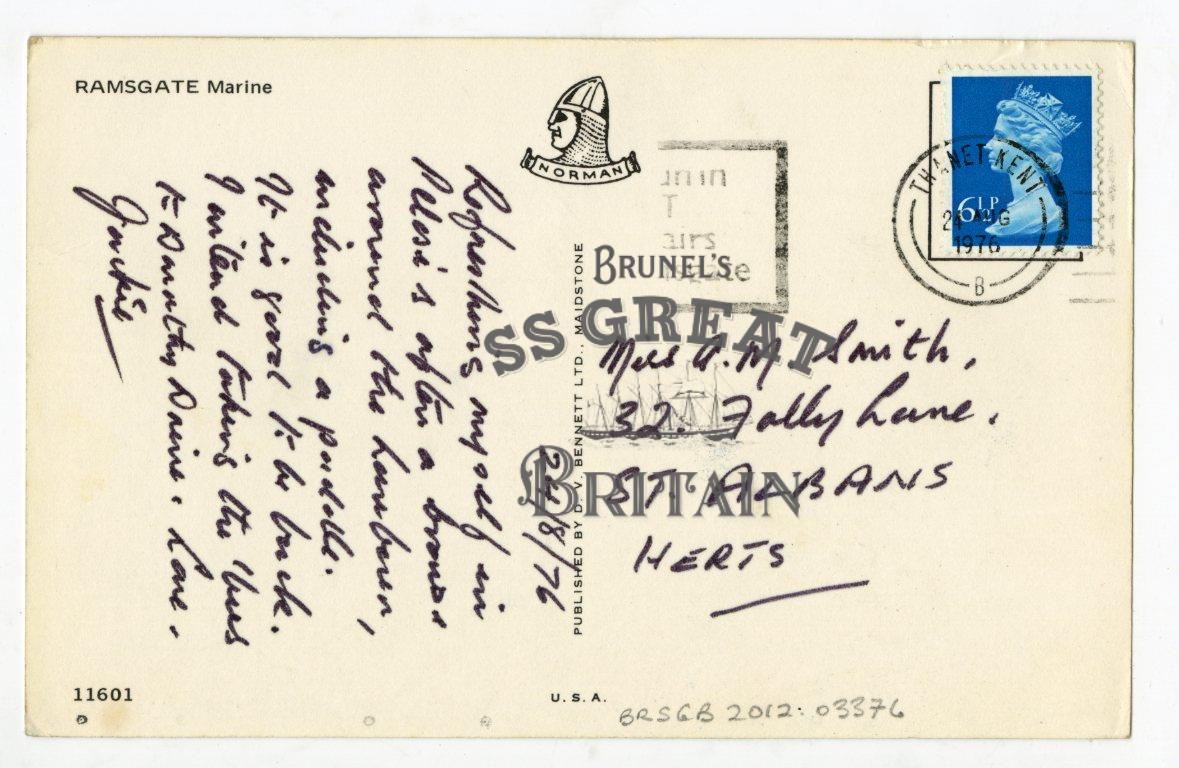 RAMSGATE Marine
NORMAN
THANET KENT
24 AUG
1976
B
6½P
un in
T
airs
gate
BRUNEL'S
SS GREAT
BRITAIN
PUBLISHED BY D. V. BENNETT LTD., MAIDSTONE
24/8/76
Refreshing myself in
Pelosi's after a browse
around the harbour,
including a paddle.
It is good to be back.
I intend taking the 'bus
to Dumpton Drive. Love.
Jackie
Miss A. M Smith,
32. Folly Lane.
ST. ALBANS
HERTS
11601
U. S. A.
BRSGB 2012. 03376